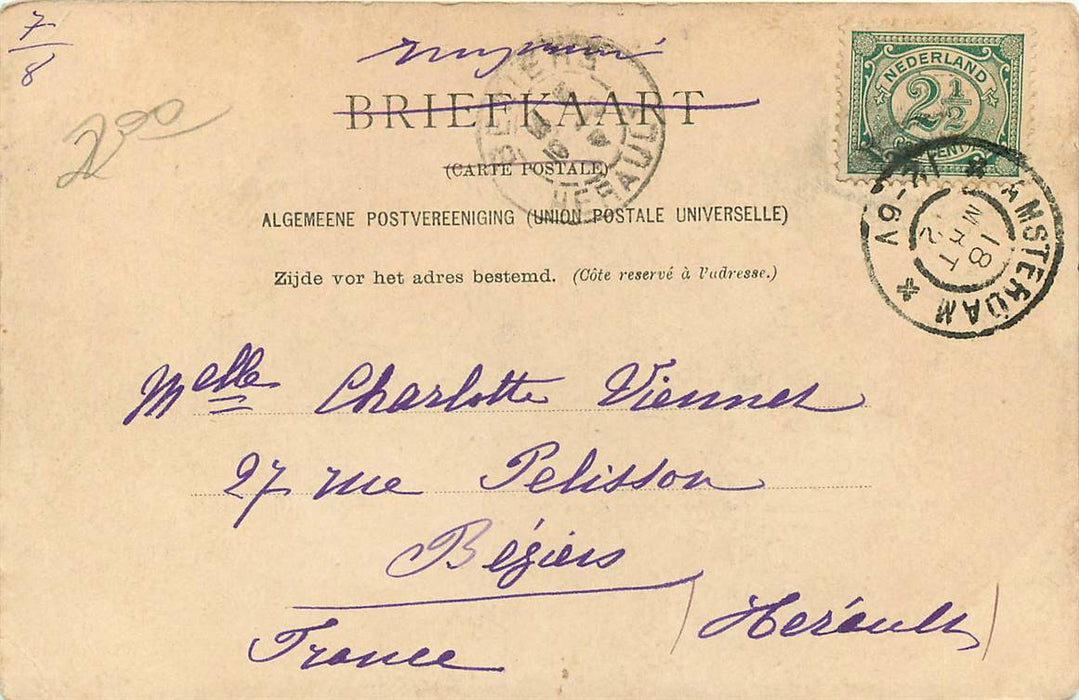 7/8
200
imprimé
BRIEFKAART
(CARTE POSTALE)
ALGEMEENE POSTVEREENIGING (UNION POSTALE UNIVERSELLE)
Zijde vor het adres bestemd. (Côte reservé à l'adresse.)
NEDERLAND
2½
CENT
AMSTERDAM
18 MRT
BEZIERS
HERAULT
Melle Charlotte Viennet
27 rue Pelisson
Béziers
(Hérault)
France